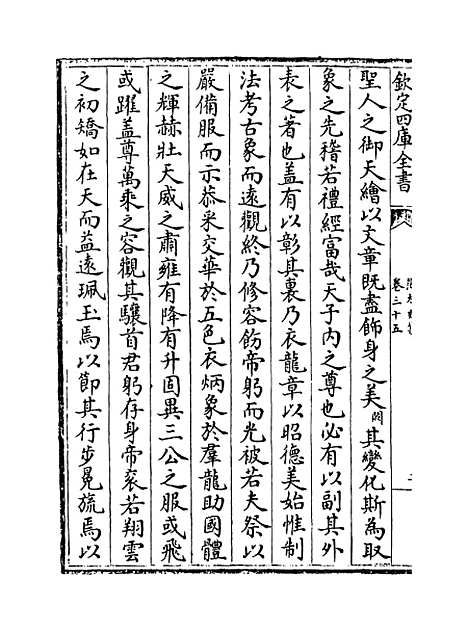 欽定四庫全書
卷三十五
聖人之御天繪以文章既盡飾身之美闕其變化斯為取
象之先稽若禮經富哉天子内之尊也必有以副其外
表之著也盖有以彰其裏乃衣龍章以昭德美始惟制
法考古象而遠觀終乃修容飭帝躬而光被若夫祭以
嚴備服而示恭采交華於五色衣炳象於羣龍助國體
之輝赫壯天威之肅雍有降有升固異三公之服或飛
或躍盖尊萬乘之容觀其驤首君躬存身帝衮若翔雲
之初矯如在天而益遠珮玉焉以節其行步冕旒焉以